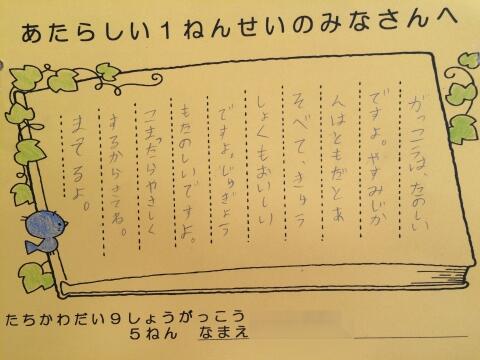 あたらしい1ねんせいのみなさんへ
がっこうは、たのしい
ですよ。やすみじか
んはともだとあ
そべて、きゅう
しょくもおいしい
ですよ。じゅぎょう
もたのしいですよ。
こまったらやさしく
するからきてね。
まてるよ。
たちかわだい9しょうがっこう
5ねん なまえ